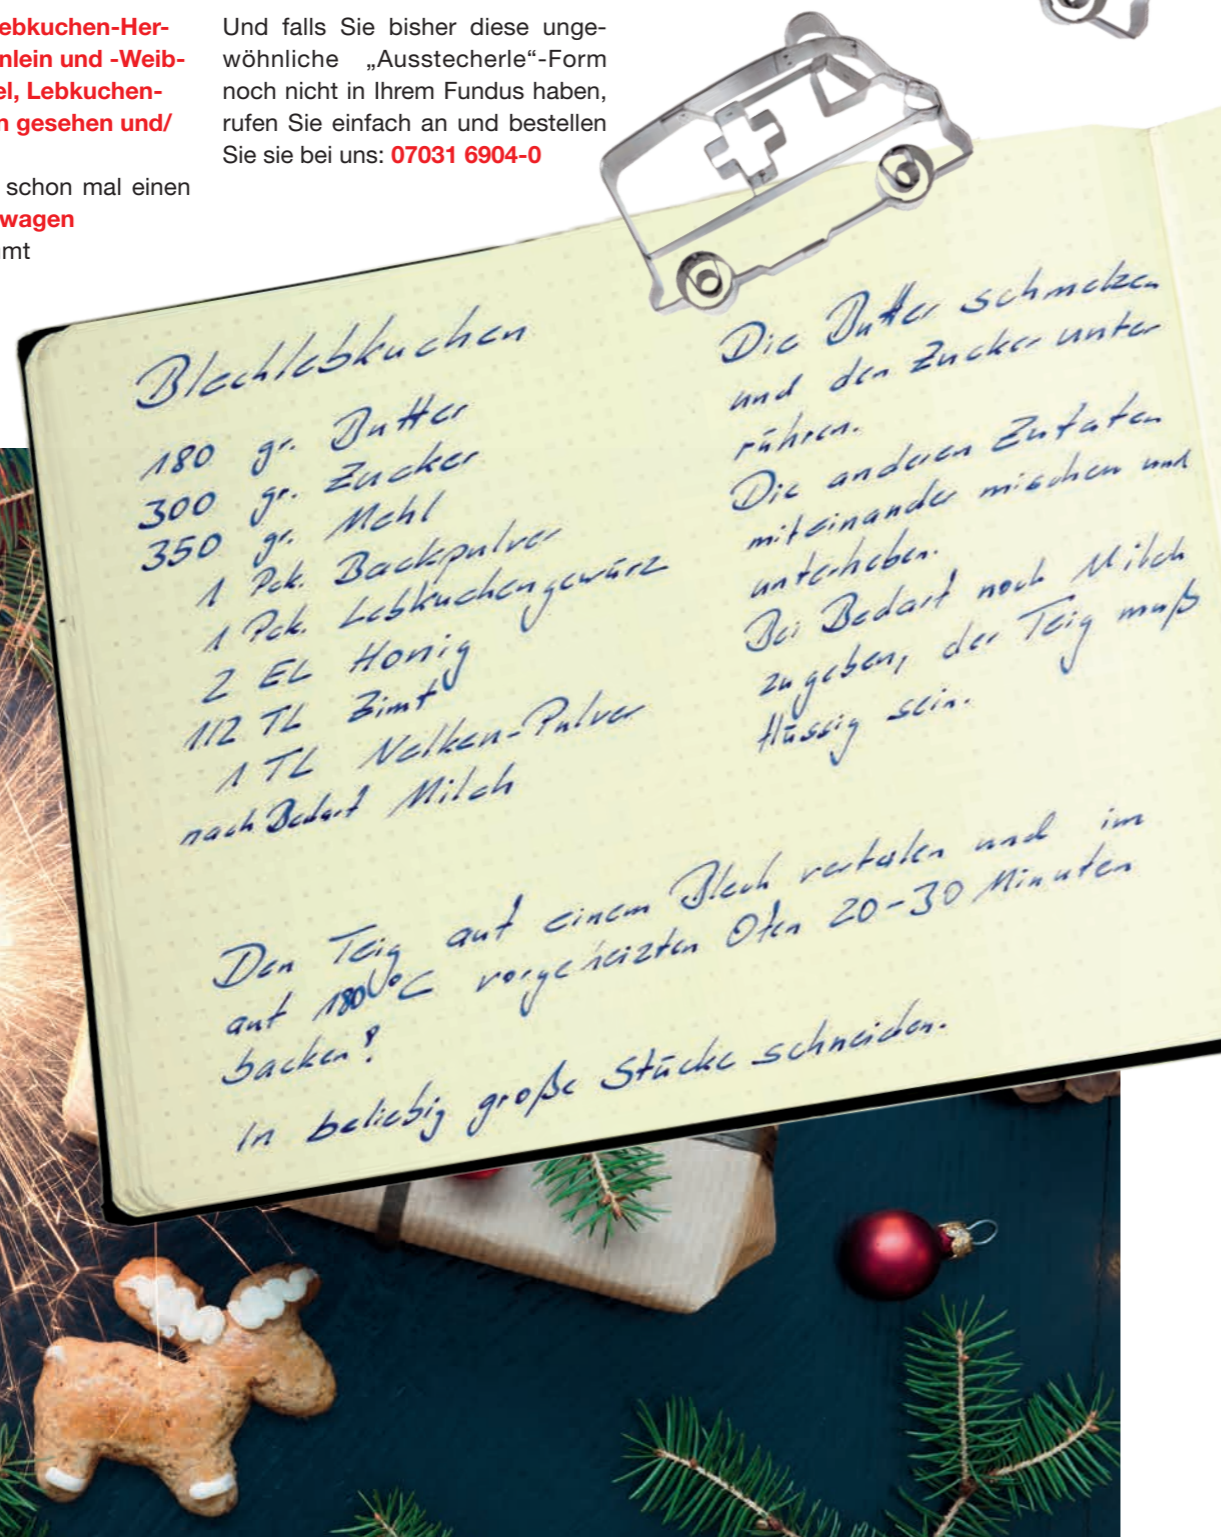 ebkuchen-Her-
nlein und -Weib-
el, Lebkuchen-
n gesehen und/
schon mal einen
wagen
mt
Und falls Sie bisher diese unge-
wöhnliche „Ausstecherle“-Form
noch nicht in Ihrem Fundus haben,
rufen Sie einfach an und bestellen
Sie sie bei uns: 07031 6904-0
Blechlebkuchen
180 gr. Butter
300 gr. Zucker
350 gr. Mehl
1 Pck. Backpulver
1 Pck. Lebkuchengewürz
2 EL Honig
1/2 TL Zimt
1 TL Nelken-Pulver
nach Bedarf Milch
Die Butter schmelzen
und den Zucker unter
rühren.
Die anderen Zutaten
miteinander mischen und
unterheben.
Bei Bedarf noch Milch
zugeben, der Teig muß
flüssig sein.
Den Teig auf einem Blech verteilen und im
auf 180°C vorgeheizten Ofen 20-30 Minuten
backen!
In beliebig große Stücke schneiden.